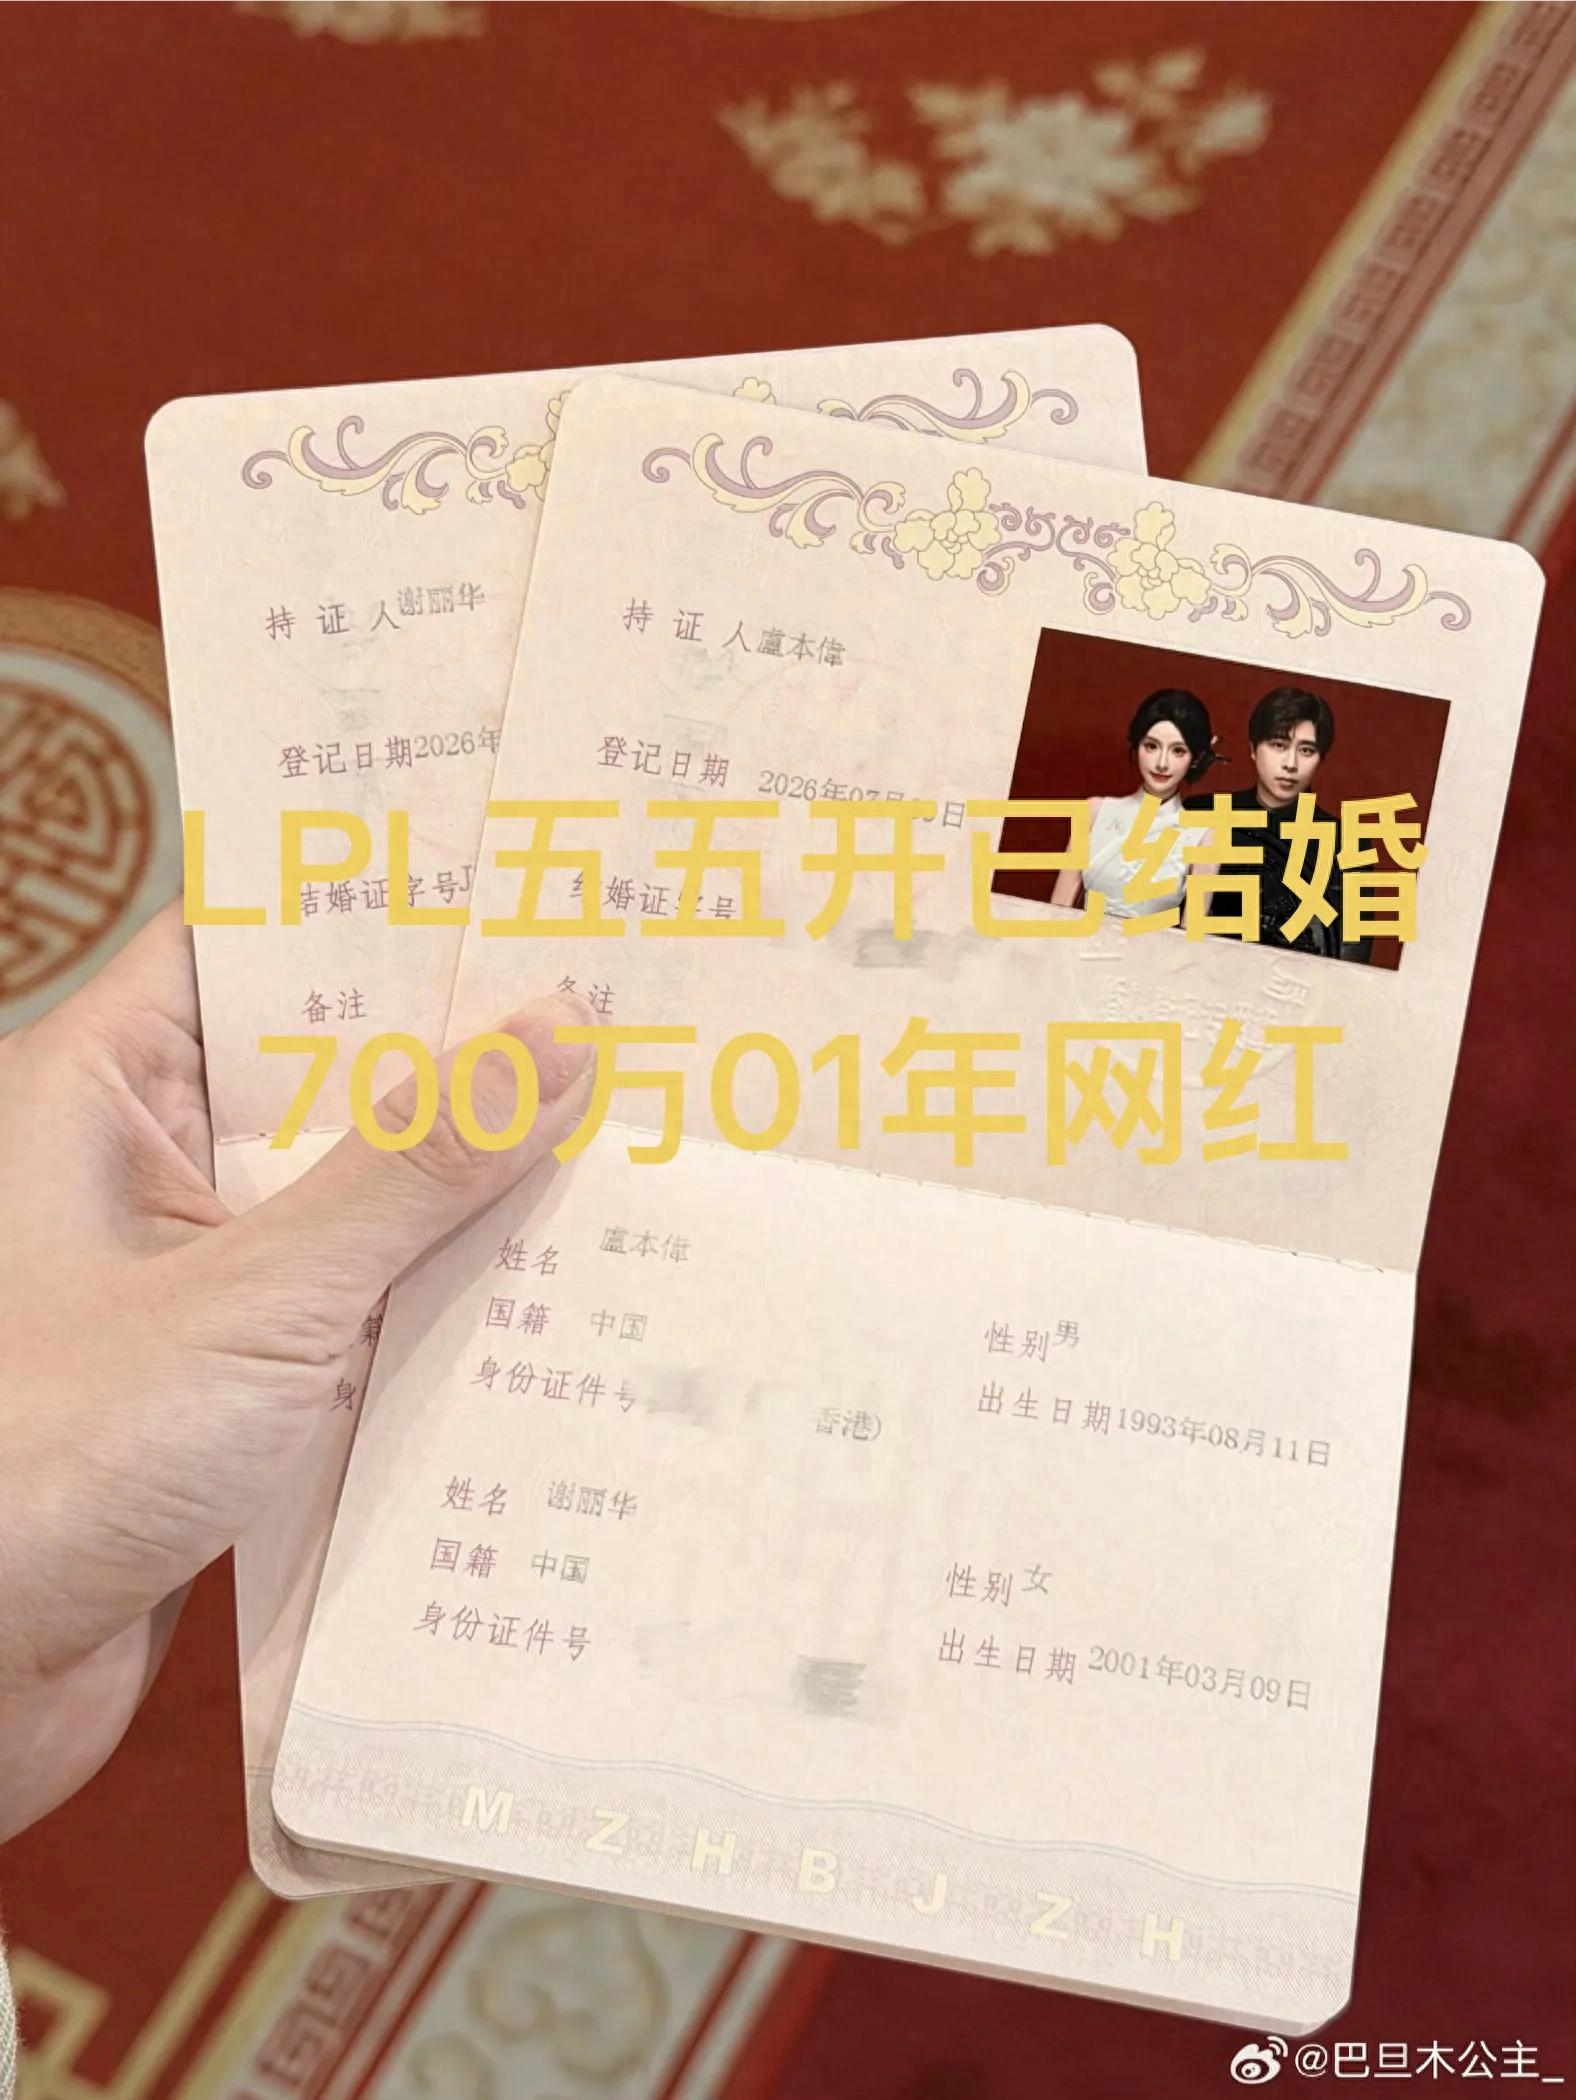 持 证 人谢丽华
登记日期2026年
结婚证字号J
备注
持 证 人盧本偉
登记日期 2026年07月 日
结婚证字号
备注
LPL五五开已结婚
700万01年网红
姓名 盧本偉
国籍 中国
性别男
身份证件号
香港)
出生日期1993年08月11日
姓名 谢丽华
国籍 中国
性别女
身份证件号
出生日期 2001年03月09日
籍
身
M Z H B J Z H
@巴旦木公主_